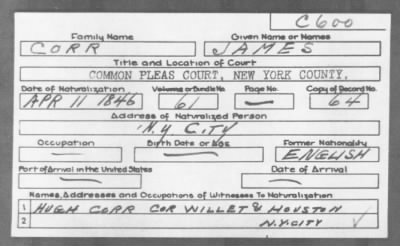 C600
Family Name Given Name or Names
CORR JAMES
Title and Location of Court
COMMON PLEAS COURT, NEW YORK COUNTY,
Date of Naturalization Volume or Bundle No. Page No. Copy of Record No.
APR 11 1846 61 — 64
Address of Naturalized Person
N.Y. CITY
Occupation Birth Date or Age Former Nationality
— — ENGLISH
Port of Arrival in the United States Date of Arrival
— —
Names, Addresses and Occupations of Witnesses To Naturalization
1 HUGH CORR COR WILLET & HOUSTON
2 N.Y. CITY